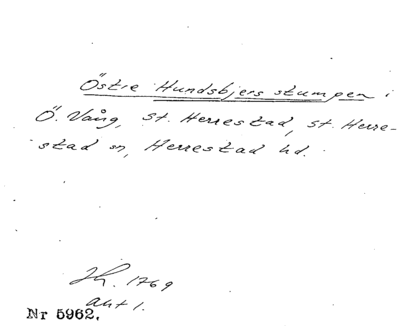 Östre Hundsbjers stumpen i
Ö. Vång, St. Herrestad, St. Herre-
stad sn, Herrestad hd.
Jh. 1769
akt 1.
Nr 5962.